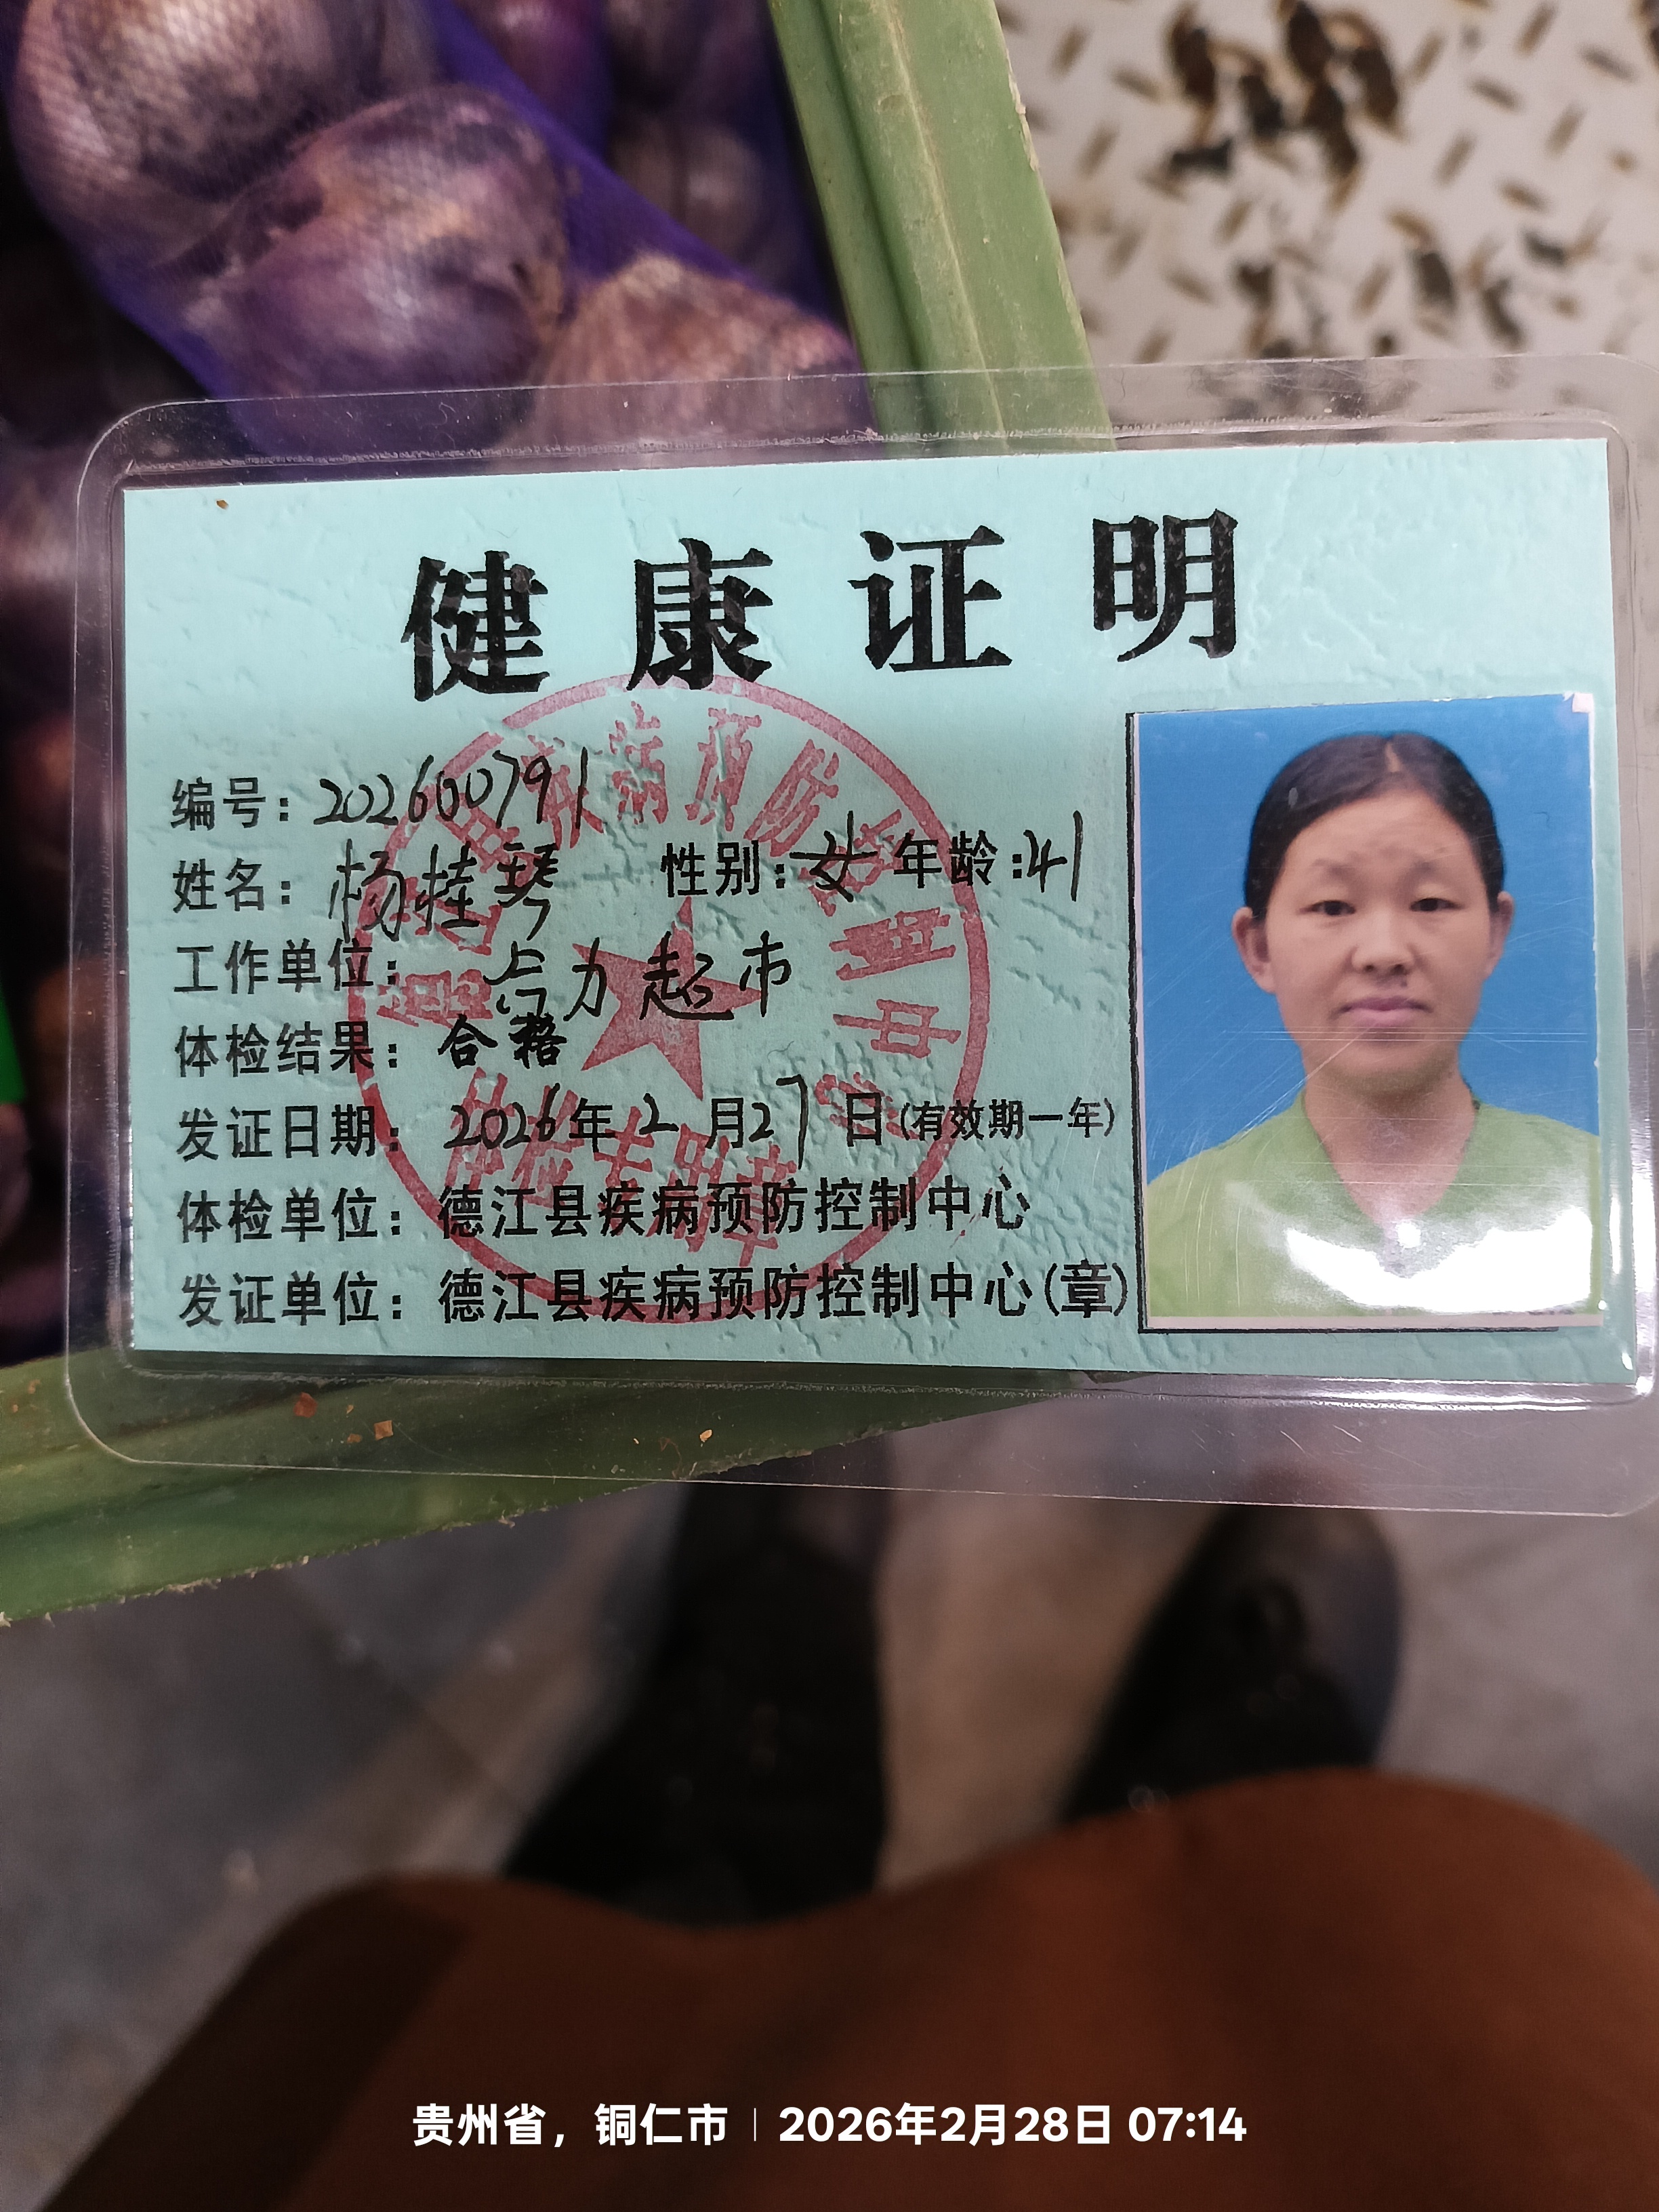 健康证明
编号：202600791
姓名：杨桂琴 性别：女 年龄：41
工作单位： 合力超市
体检结果：合格
发证日期：2026年2月27日(有效期一年)
体检单位：德江县疾病预防控制中心
发证单位：德江县疾病预防控制中心(章)
贵州省，铜仁市 2026年2月28日 07:14